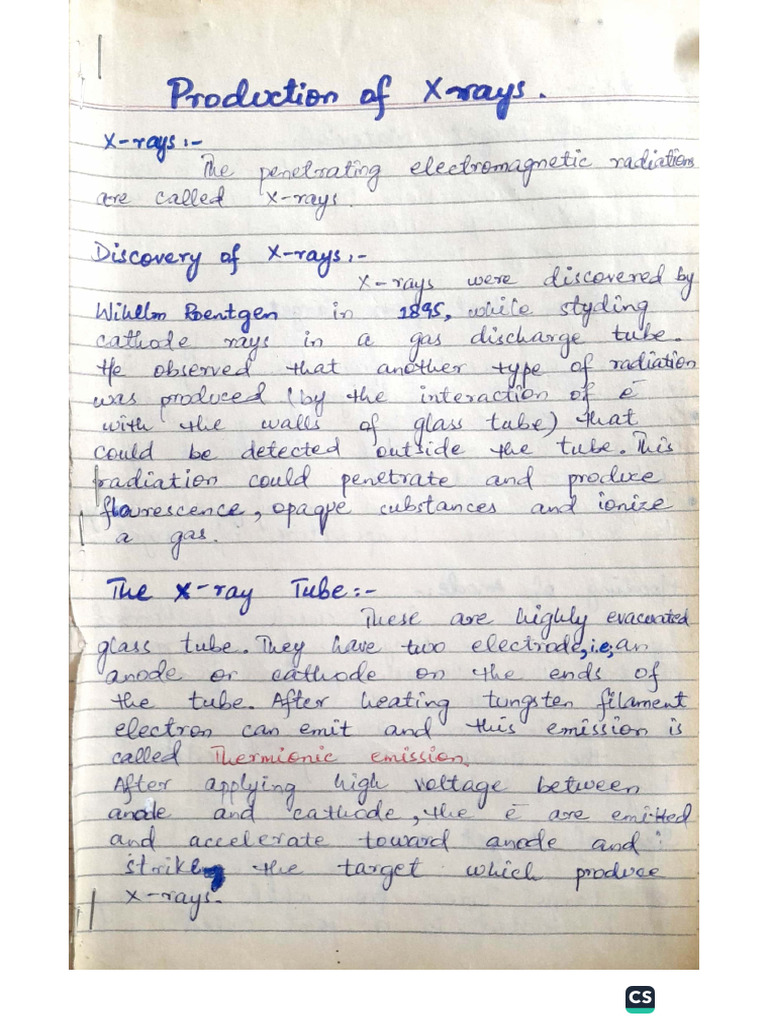 Production of X-rays.
X-rays:-
The penetrating electromagnetic radiations
are called X-rays.
Discovery of X-rays:-
X-rays were discovered by
Wihelm Roentgen in 1895, while styding
cathode rays in a gas discharge tube.
He observed that another type of radiation
was produced (by the interaction of e⁻
with the walls of glass tube) that
could be detected outside the tube. This
radiation could penetrate and produce
flourescence, opaque substances and ionize
a gas.
The X-ray Tube:-
These are highly evacuated
glass tube. They have two electrode, i.e; an
anode or cathode on the ends of
the tube. After heating tungsten filament
electron can emit and this emission is
called Thermionic emission.
After applying high voltage between
anode and cathode, the e⁻ are emitted
and accelerate toward anode and
strike the target which produce
X-rays.
CS